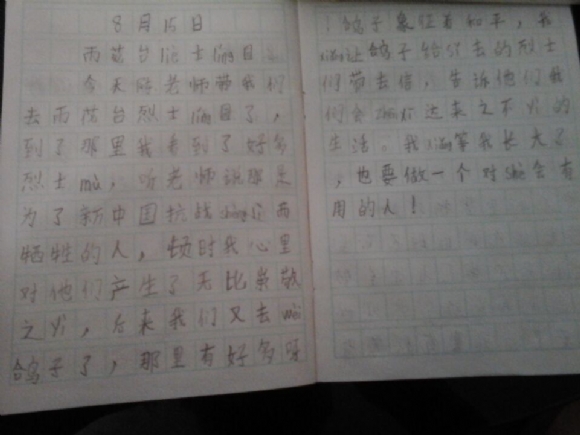 8月15日
雨花台烈士
今天陈老师带我们
去雨花台烈士了，
到了那里我看到了好多
烈士mù，听老师说那是
为了新中国抗战而
牺牲的人，顿时我心里
对他们产生了无比崇敬
之，后来我们又去wèi
鸽子了，那里有好多呀
！鸽子象征着和平，我
让鸽子给死去的烈士
们带去信，告诉他们我
们会这来之不易的
生活。我等我长大了
，也要做一个对会有
用的人！